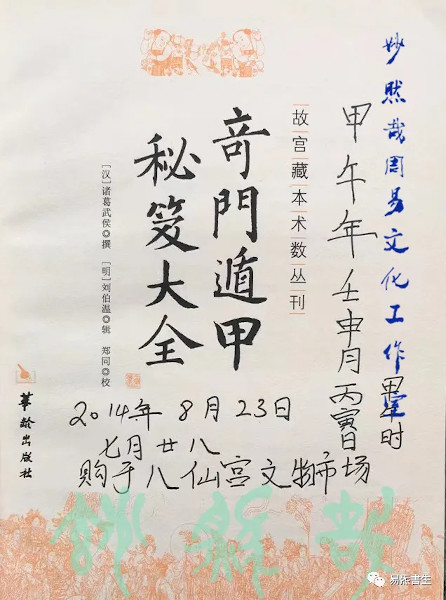 妙然哉周易文化工作室
甲午年壬申月丙寅日甲午时
故宫藏本术数丛刊
奇門遁甲
秘笈大全
[汉]诸葛武侯◎撰 [明]刘伯温◎辑 郑同◎校
華龄出版社
2014年8月23日
七月廿八
购于八仙宫文物市场
妙然哉
易然書生